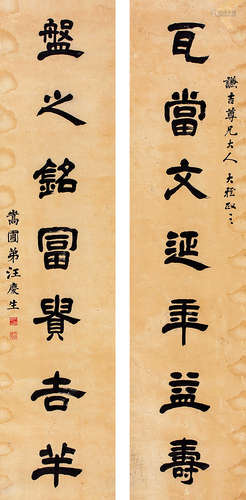 謙吉尊兄大人 大雅政之
瓦當文延年益壽
盤之銘冨貴吉羊
嵩圃弟汪慶生